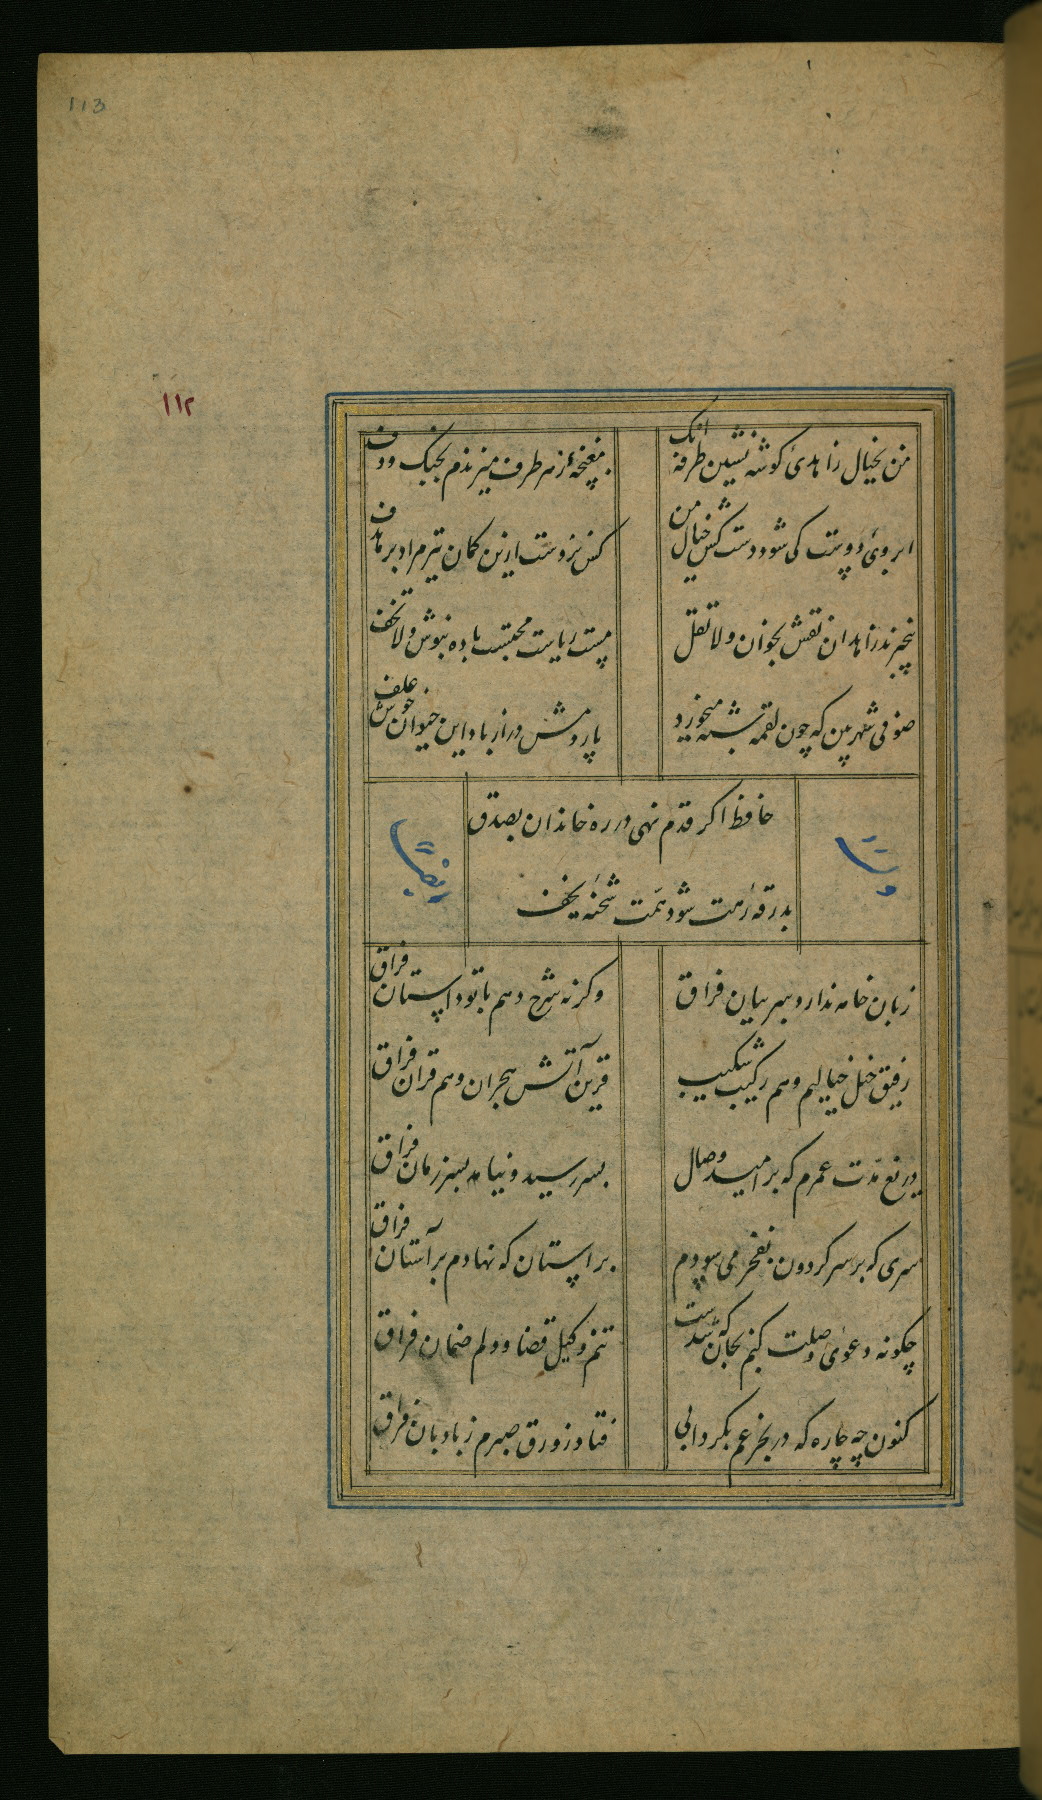 113
۱۱۲
من بخیال زاهدی کوشه نشین طرفه انک
مغبچهٔ ز هر طرف میزندم بچنک ودف
ابروی دوست کی شود دست کش خیال من
کس نزدست ازین کمان تیر مراد بر هدف
بیخبرند زاهدان نقش بخوان ولا تقل
مست ریاست محتسب باده بنوش ولا تخف
صوفی شهر بین که چون لقمه شبهه میخورد
پاردمش دراز باد این حیوان خوش علف
حافظ اکر قدم نهی در ره خاندان بصدق
بدرقه رهت شود همت شحنهٔ نجف
زبان خامه ندارد سر بیان فراق
وکرنه شرح دهم با تو داستان فراق
رفیق خیل خیالیم وهم رکیب شکیب
قرین آتش هجران وهم قران فراق
دریغ مدت عمرم که بر امید وصال
بسر رسید و نیامد بسر زمان فراق
سری که بر سر کردون بفخر می سودم
بر استان که نهادم بر آستان فراق
چکونه دعوی وصلت کنم بجان که شدست
تنم وکیل قضا و دلم ضمان فراق
کنون چه چاره که در بحر غم بکردابی
فتاد زورق صبرم ز بادبان فراق